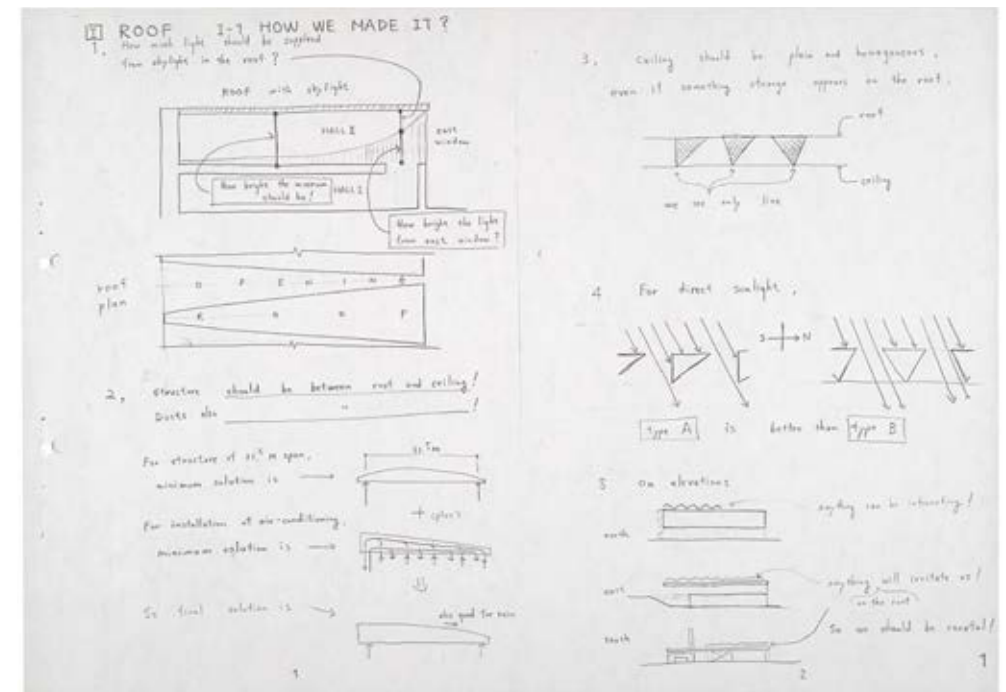 I ROOF I-1 HOW WE MADE IT?
1. How much light should be supplied
from skylight in the roof?
ROOF with skylight
HALL II
east
window
How bright the minimum
should be!
HALL I
How bright the light
from east window?
roof
plan
O P E N I N G
R O O F
2, structure should be between roof and ceiling!
Ducts also " !
For structure of m span,
minimum solution is
+ (plus)
For installation of air-conditioning,
minimum solution is
So final solution is
also good for rain
1
3, Ceiling should be plain and homogeneous,
even if something strange appears on the roof.
roof
ceiling
we see only line
4 For direct sunlight,
S N
type A is better than type B
5 On elevations
north
anything can be interesting!
east
anything will irritate us!
on the roof
south
So we should be careful!
2
1